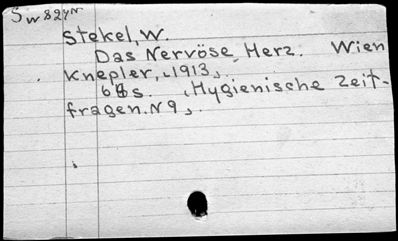 Sw824N
Stekel, W.
Das Nervöse Herz. Wien
Knepler, 1913.
s. Hygienische Zeit-
fragen. N9.